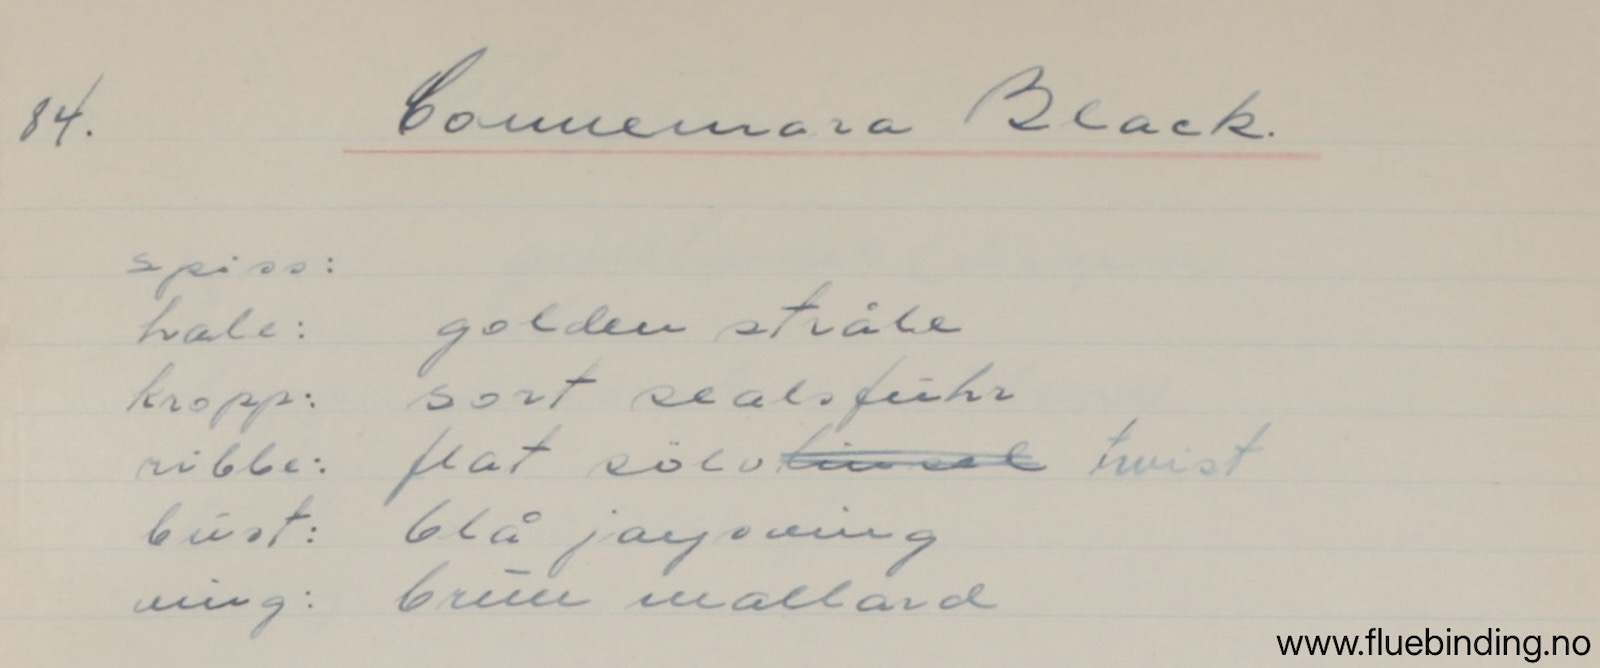 84. Connemara Black.
spiss:
hale: golden stråle
kropp: sort sealsfuhr
ribbe: flat sölvtinsel twist
bust: blå jayswing
wing: brun mallard
www.fluebinding.no